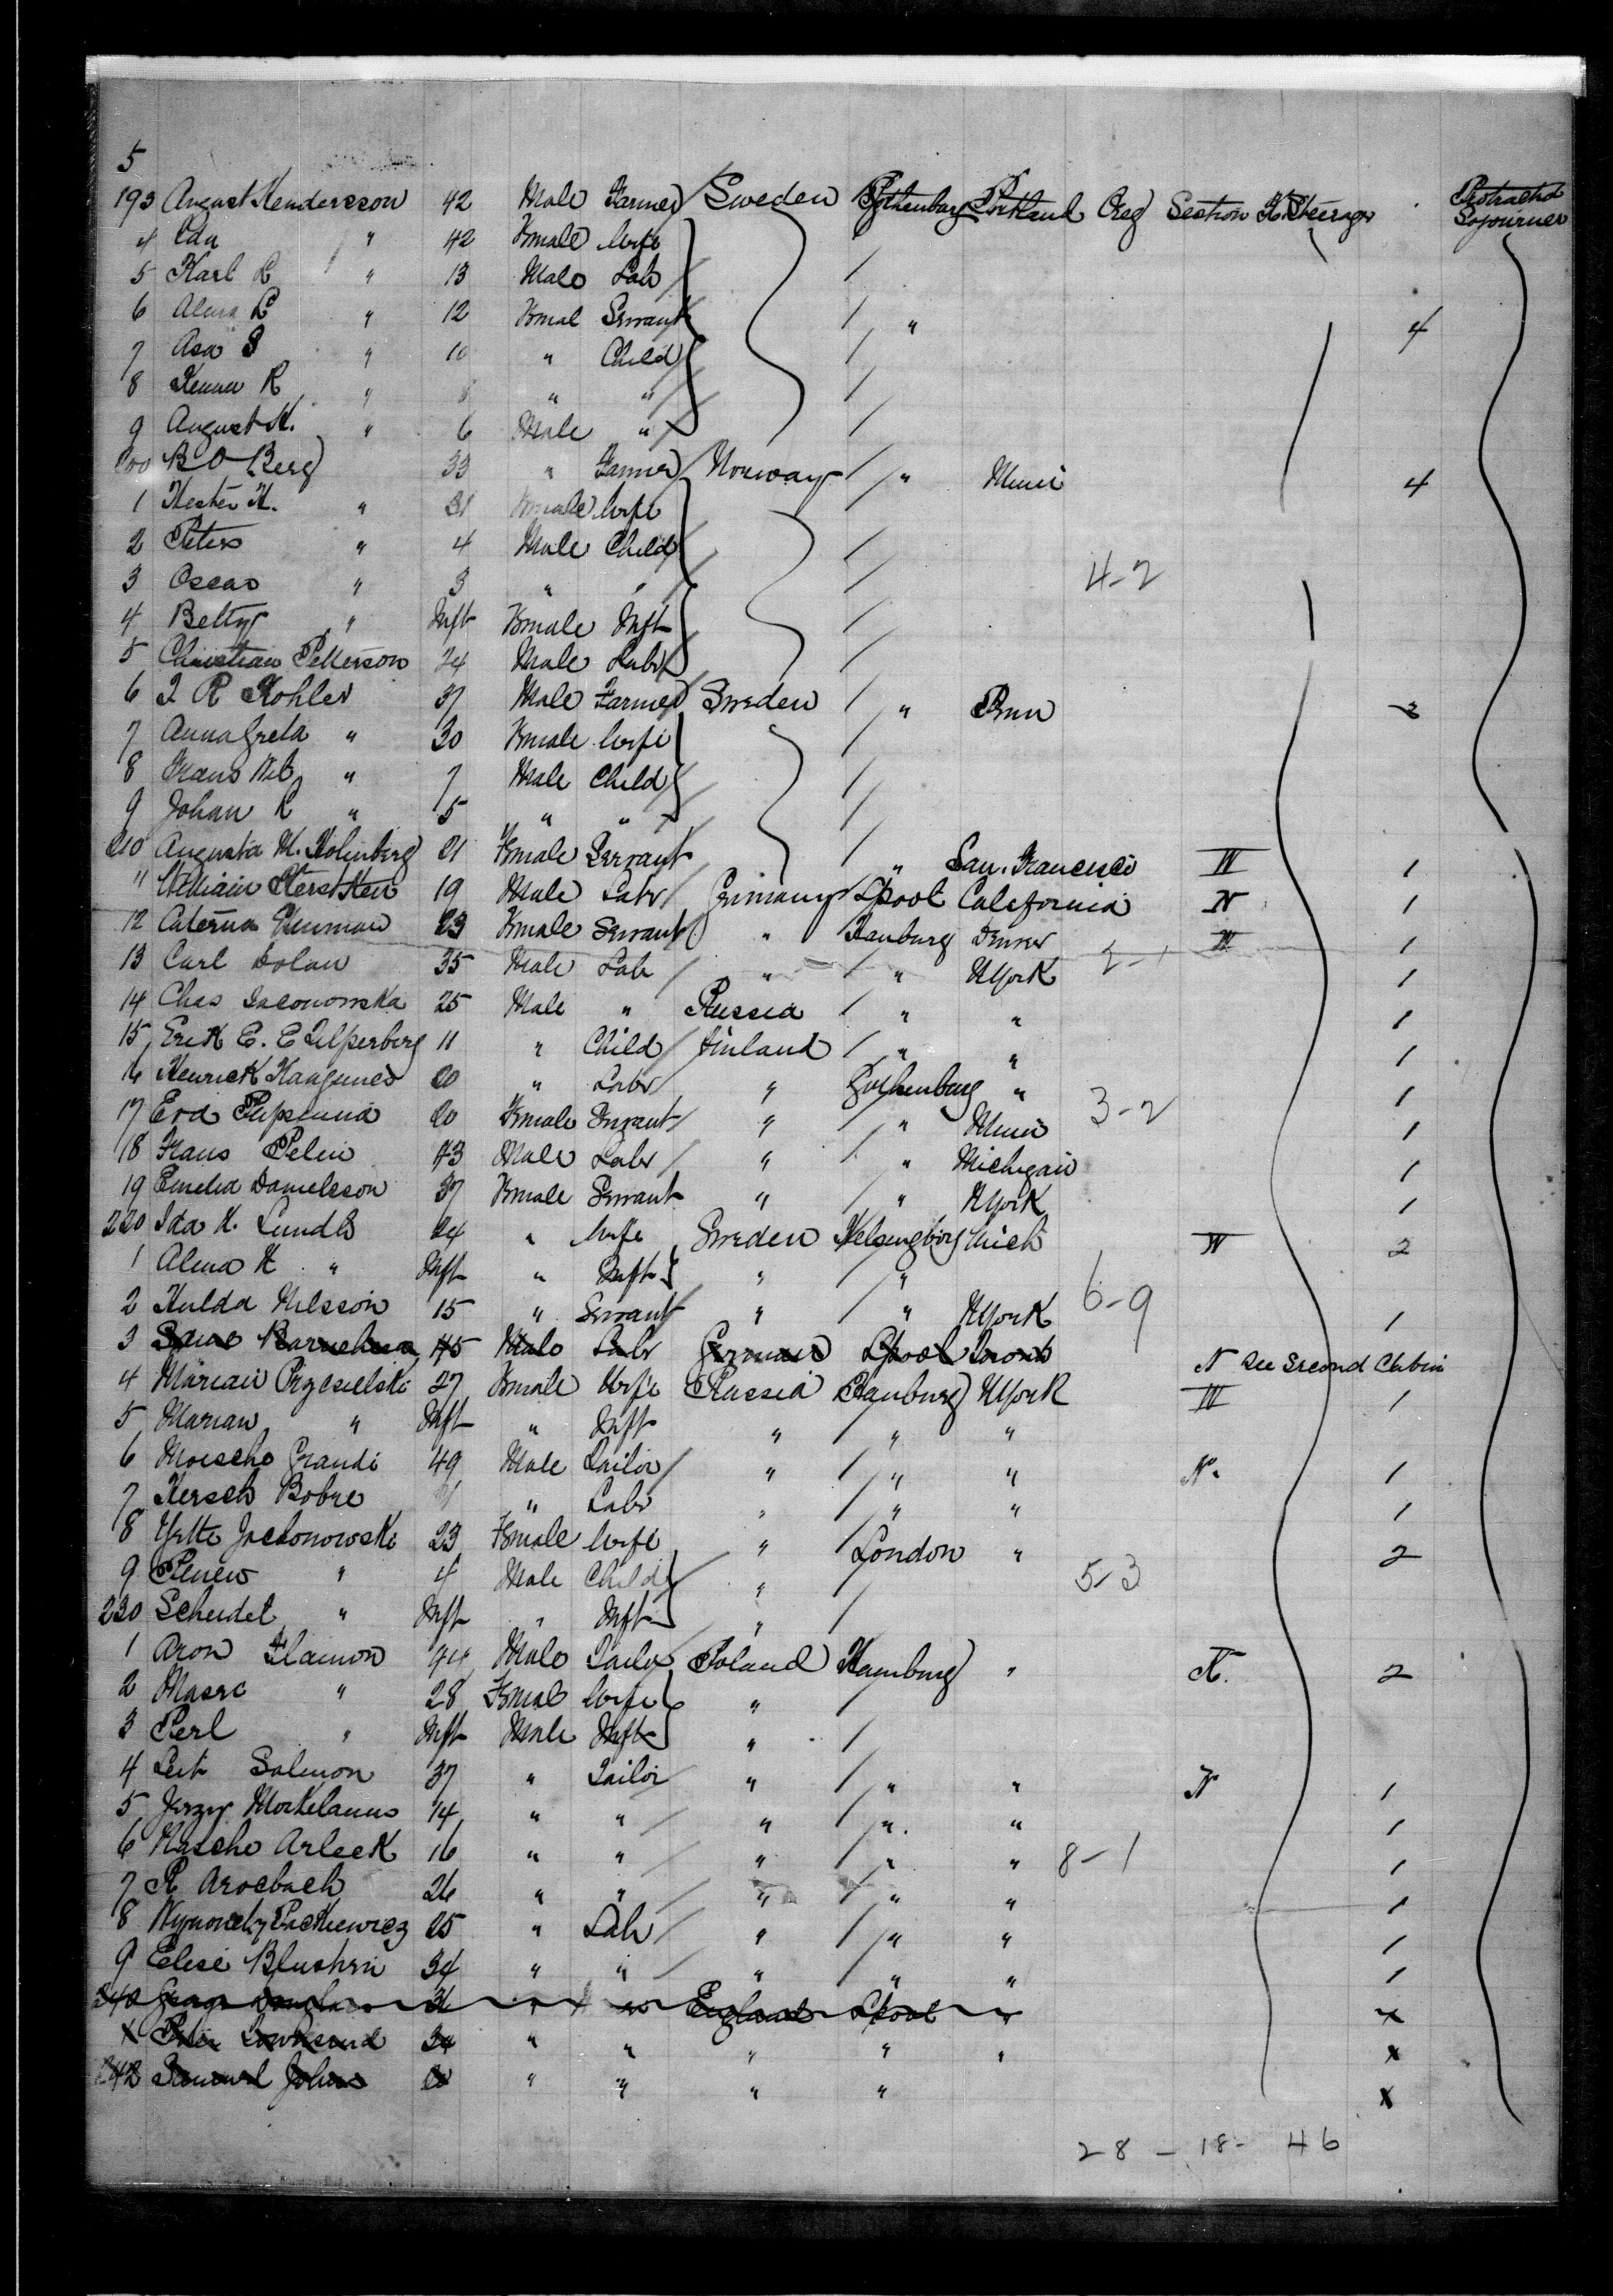 5
193 August Hendersson 42 Male Farmer Sweden Gothenburg Portland Oreg Section H. Steerage Protracted Sojourner
4 Eda " 42 Female Wife
5 Karl L " 13 Male Lab
6 Alma L " 12 Femal Servant " 4
7 Asa S " 10 " Child
8 Henna R " 8 " "
9 August H. " 6 Male "
200 B O Berg 33 " Farmer Norway " Minn 4
1 Hester H. " 31 Female Wife
2 Peters " 4 Male Child
3 Oscar " 3 " " 4-2
4 Betty " Inft Female Inft
5 Christian Petterson 24 Male Labr
6 J R Kohler 37 Male Farmer Sweden " Penn 3
7 Anna Greta " 30 Female Wife
8 Frans Wil " 7 Male Child
9 Johan L " 5 " "
210 Augusta M. Holmberg 21 Female Servant " San. Francisco N 1
" William 19 Male Labr Germany Lpool California N 1
12 Caterina 23 Female Servant " Hamburg Denver N 1
13 Carl Dolan 35 Male Lab " " NYork 2-1 1
14 Chas Jaconowska 25 Male " Russia " " 1
15 Erik E. E Lilperberg 11 " Child Finland " " 1
16 Henrick 20 " Labr " Gothenburg " 1
17 Eva 20 Female Servant " " Minn 3-2 1
18 Hans Pelin 43 Male Labr " " Michigan 1
19 Emelia Danielsson 37 Female Servant " " NYork 1
220 Ida H. Lundh 24 " Wife Sweden Helsingborg Mich N 2
1 Alma H " Inft " Inft " "
2 Hulda Nilsson 15 " Servant " " NYork 6-9 1
3 45 Male Labr German Lpool N See Second Cabin
4 Mariai Przesielski 27 Female Wife Russia Hamburg NYork N 1
5 Marian " Inft " Inft " " "
6 Moscho Grandi 49 Male Tailor " " " N. 1
7 Hersch Bobre " Labr " " " 1
8 Yette Jachonowski 23 Female Wife " London " 2
9 " 4 Male Child " 5-3
230 Scheidel " Inft " Inft "
1 Aron Flamon 44 Male Tailor Poland Hamburg " N. 2
2 Masre " 28 Femal Wife "
3 Perl " Inft Male Inft "
4 Leib Salmon 37 " Tailor " " " N 1
5 14 " " " " " 1
6 Nascho Arleck 16 " " " " " 8-1 1
7 R Arocbach 26 " " " " " 1
8 Packiewicz 25 " Labr " " " 1
9 Elese Blushrin 34 " " " " " 1
240 George " " England Lpool " x
x Townsend 34 " " " " " x
242 Samuel Johns 20 " " " " x
28 - 18 - 46